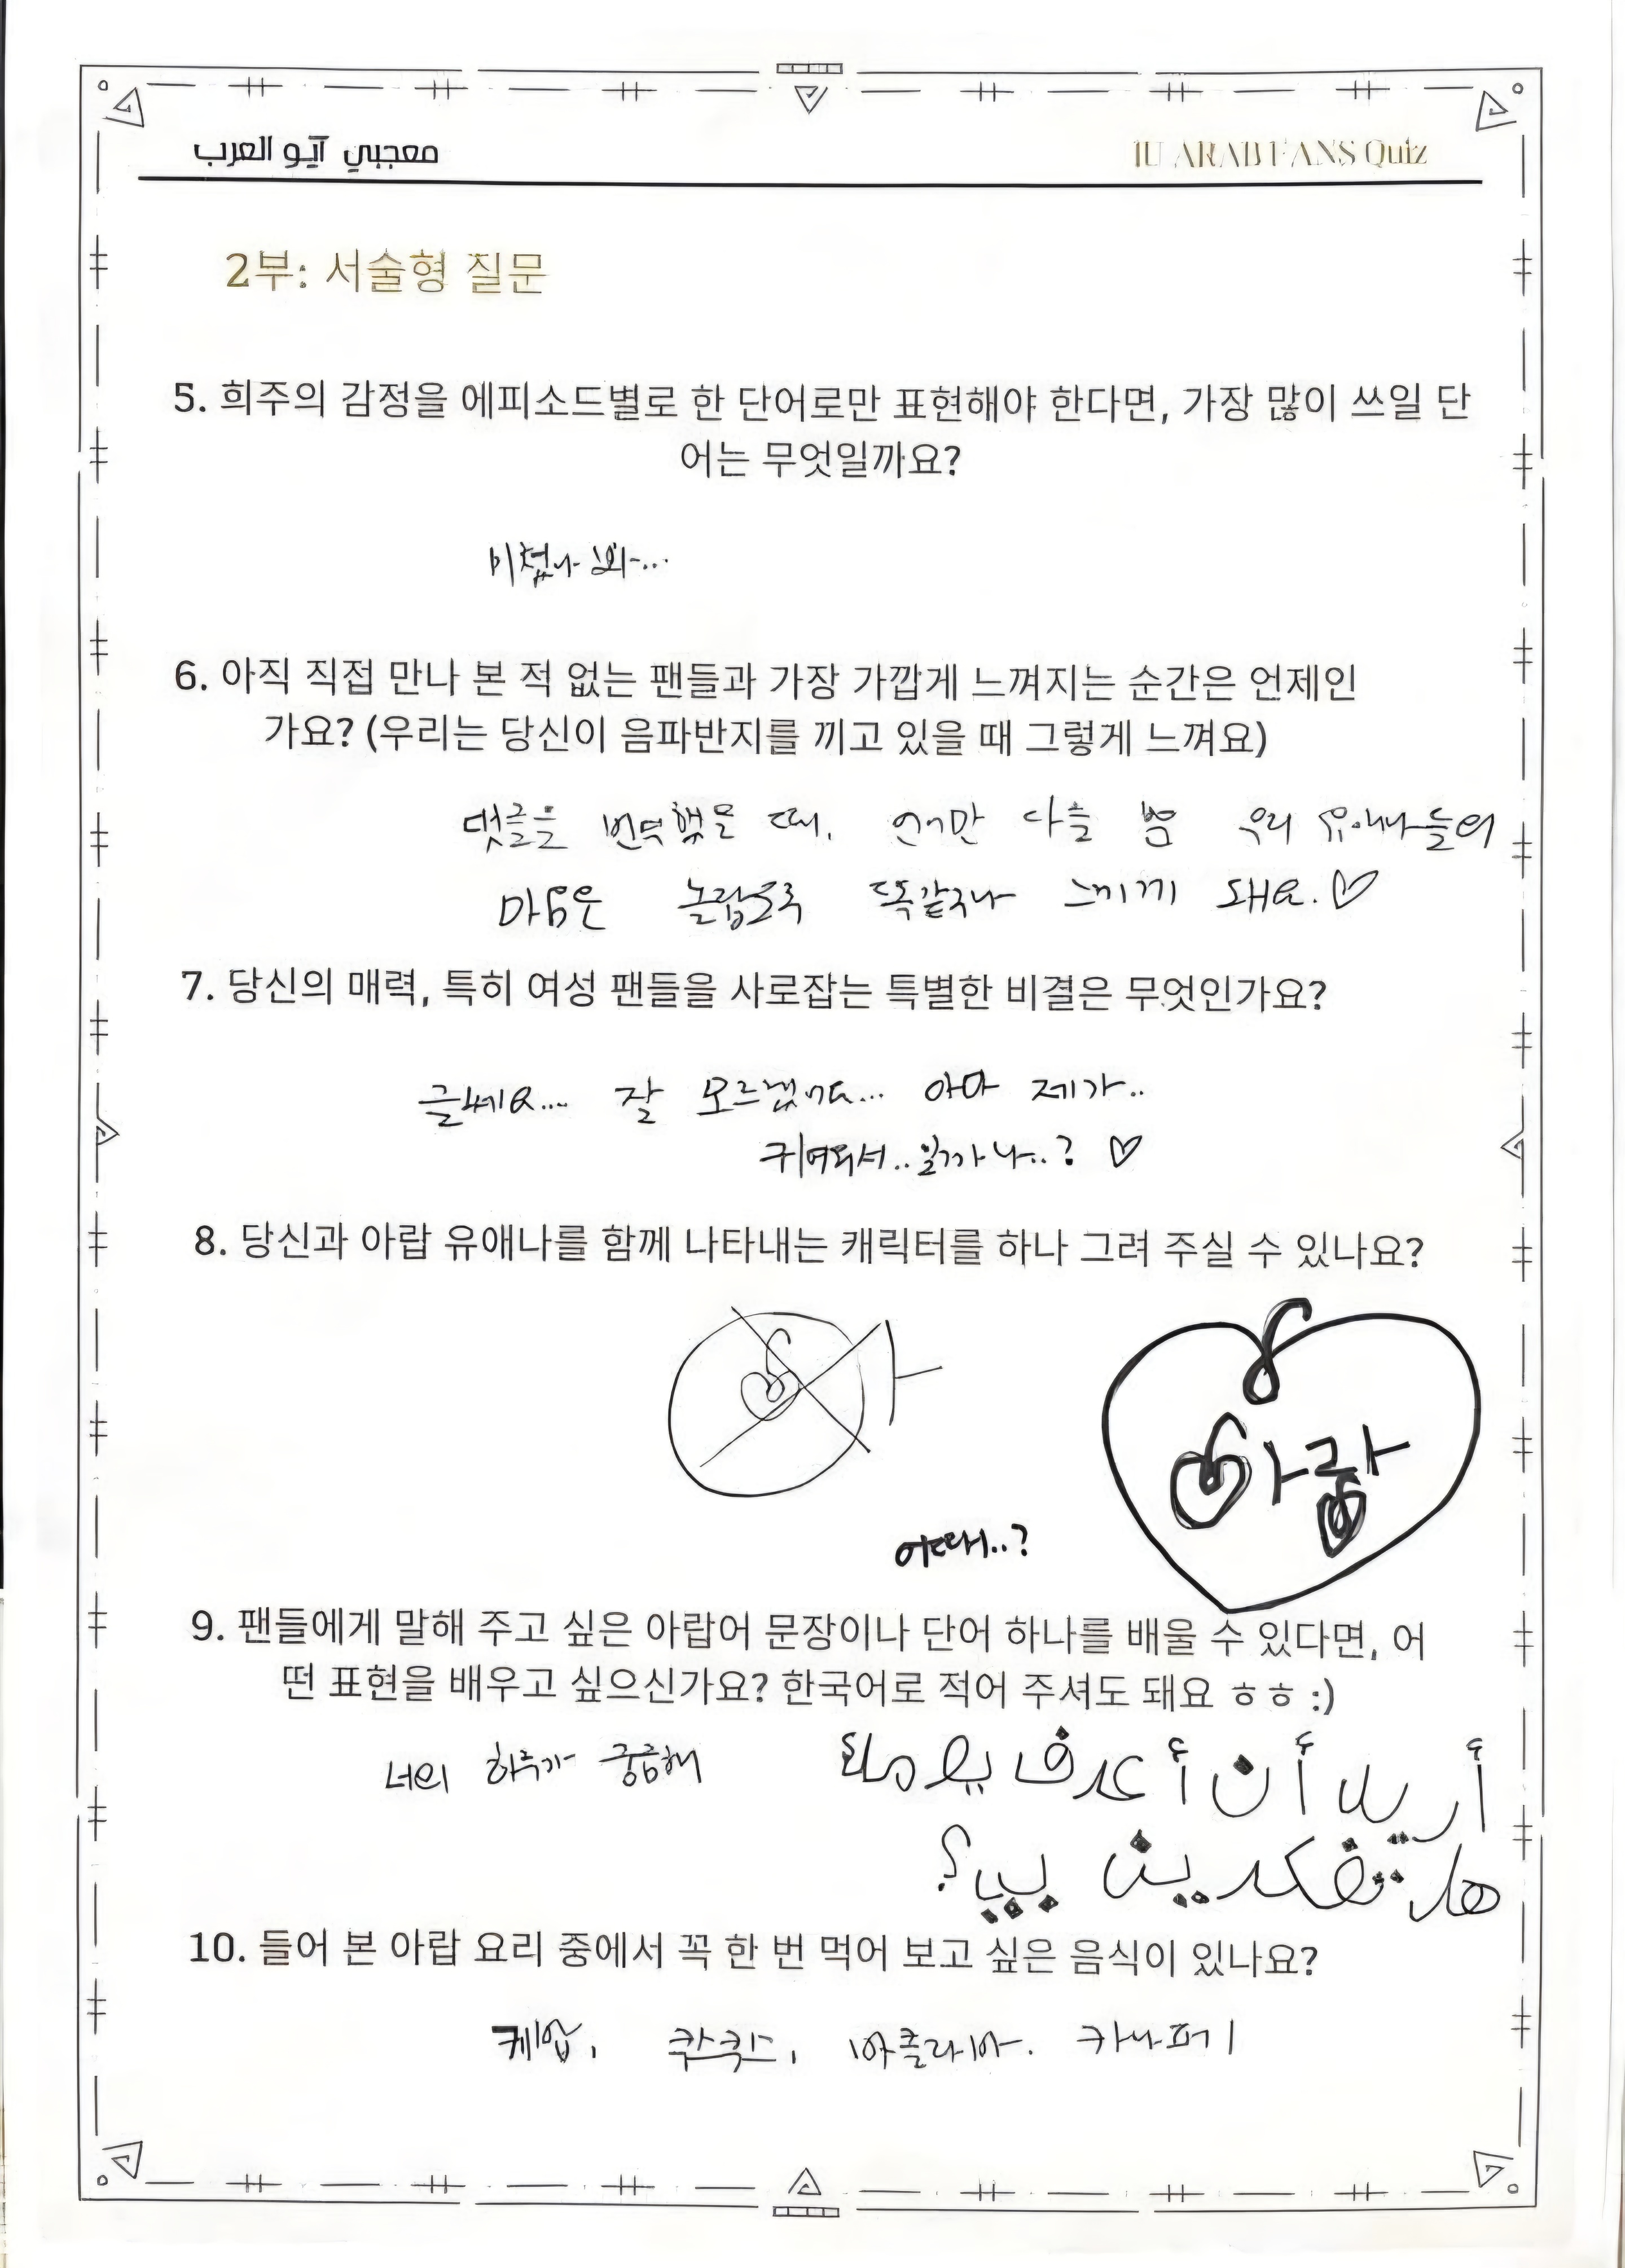 معجبي آيو العرب
IU ARAB FANS Quiz
2부: 서술형 질문
5. 희주의 감정을 에피소드별로 한 단어로만 표현해야 한다면, 가장 많이 쓰일 단
어는 무엇일까요?
미쳤나 봐...
6. 아직 직접 만나 본 적 없는 팬들과 가장 가깝게 느껴지는 순간은 언제인
가요? (우리는 당신이 음파반지를 끼고 있을 때 그렇게 느껴요)
댓글을 번역했을 때. 언어만 다를 뿐 우리 유애나들의
마음은 놀랍도록 똑같구나 느끼게 돼요. ♡
7. 당신의 매력, 특히 여성 팬들을 사로잡는 특별한 비결은 무엇인가요?
글쎄요... 잘 모르겠어요... 아마 제가..
귀여워서.. 일까나..? ♡
8. 당신과 아랍 유애나를 함께 나타내는 캐릭터를 하나 그려 주실 수 있나요?
아랍
어때..?
9. 팬들에게 말해 주고 싶은 아랍어 문장이나 단어 하나를 배울 수 있다면, 어
떤 표현을 배우고 싶으신가요? 한국어로 적어 주셔도 돼요 ㅎㅎ :)
너의 하루가 궁금해
أريد أن أعرف يومك
هل تفكرين بي؟
10. 들어 본 아랍 요리 중에서 꼭 한 번 먹어 보고 싶은 음식이 있나요?
케밥, 바클라바.